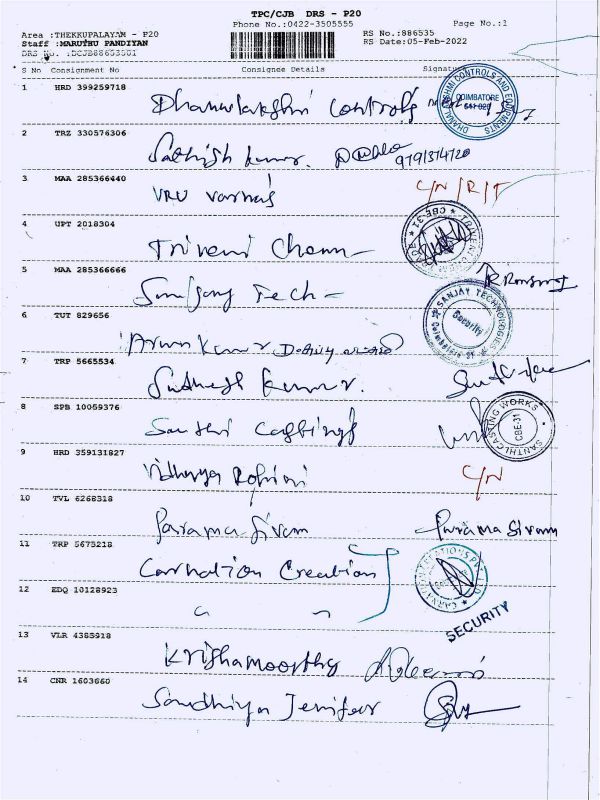 TPC/CJB DRS - P20
Phone No.:0422-3505555 Page No.:1
Area :THEKKUPALAYAM - P20 RS No.:886535
Staff :MARUTHU PANDIYAN RS Date:05-Feb-2022
DRS No. :DCJB88653501
S No Consignment No Consignee Details Signature
1 HRD 399259718
Dhanalakshmi Controls
DHANALAKSHMI CONTROLS AND EQUIPMENTS COIMBATORE
2 TRZ 330576306
Sathish Kumar.
3 MAA 285366440
VRU Varnas C/N /R/T
4 UPT 2018304
Triveni Chem
CBE-31
5 MAA 285366666
Sanjay Tech
SANJAY TECHNOLOGIES Security
6 TUT 829656
Arun Kumar
7 TRP 5665534
Suthesh Kumar.
8 SPB 10059376
Santhi Castings
SANTHI CASTING WORKS CBE-11
9 HRD 359131827
Vidharya Rohini C/N
10 TVL 6268318
Parama Sivam Parama Sivam
11 TRP 5675218
Carnation Creation
12 EDQ 10128923
SECURITY
13 VLR 4385918
Krishamoorthy
14 CNR 1603660
Sandhiya Jenifer